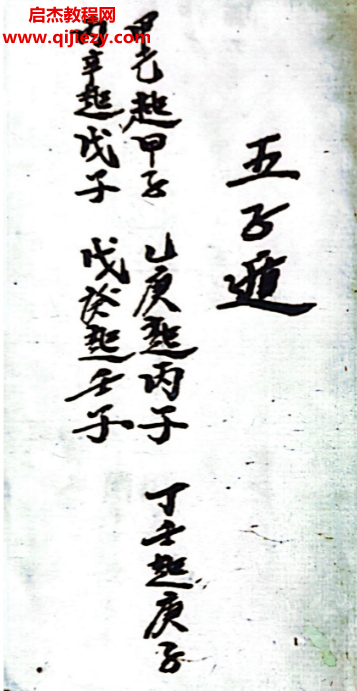 启杰教程网
www.qijiezy.com
五子遁
甲己起甲子 乙庚起丙子 丁壬起庚子
丙辛起戊子 戊癸起壬子